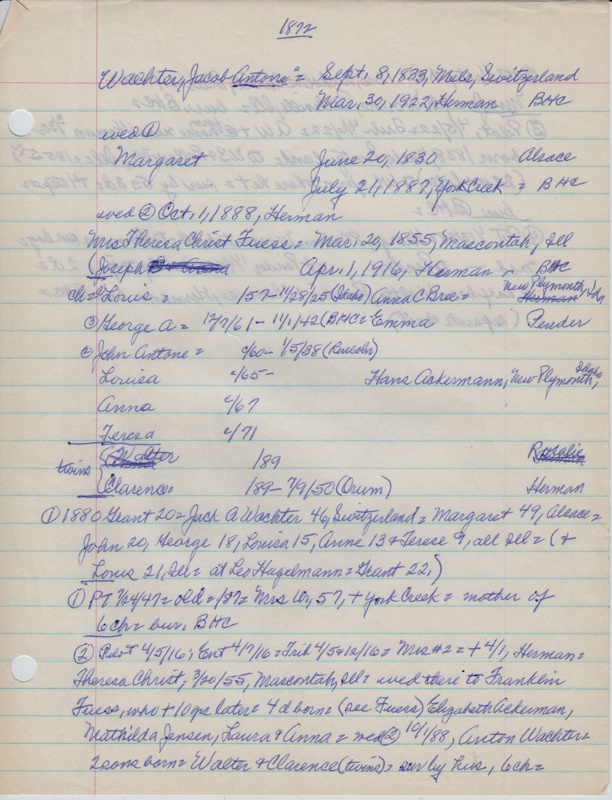 1872
Wachter, Jacob Antone" = Sept. 8, 1833, Mels, Switzerland
Mar. 30, 1922, Herman BHC
wed ①
Margaret June 20, 1830 Alsace
July 21, 1887, York Creek = BHC
wed ② Oct. 1, 1888, Herman
Mrs Theresa Christ Fuess = Mar. 20, 1855, Mascoutah, Ill
(Joseph Apr. 1, 1916, Herman - BHC
ch = Louis = /57 - 11/28/25 (Idaho) Anna C Bree = New Plymouth, Ida
Herman
George A = 12/7/61 - 11/1/42 (BHC = Emma Pender
John Antone = c/60 - 1/5/38 (Lincoln)
Louisa c/65 - Hans Ackermann, New Plymouth, Idaho
Anna c/67
Teresa c/71
twins { Walter /89 Rosalie
{ Clarence = /89 - 7/9/50 (Orum) Herman
① 1880 Grant 20 = Jack A Wachter 46, Switzerland = Margaret 49, Alsace =
John 20, George 18, Louisa 15, Anne 13 + Terese 9, all Ill = (+
Louis 21, Ill = at Leo Hagelmann = Grant 22,)
① PT 7/24/47 = old = /87 = Mrs W, 57, + York Creek = mother of
6ch = bur. BHC
② Pilot 4/5/16; Ent 4/7/16 = Trib 4/5+12/16 = Mrs #2 = + 4/1, Herman =
Theresa Christ, 3/20/55, Mascoutah, Ill = wed there to Franklin
Fuess, who + 10 yrs later = 4 d born = (see Fuess) Elizabeth Ackerman,
Mathilda Jensen, Laura + Anna = wed ② 10/1/88, Anton Wachter =
2 sons born = Walter + Clarence (twins) = sur by hus, 6ch =